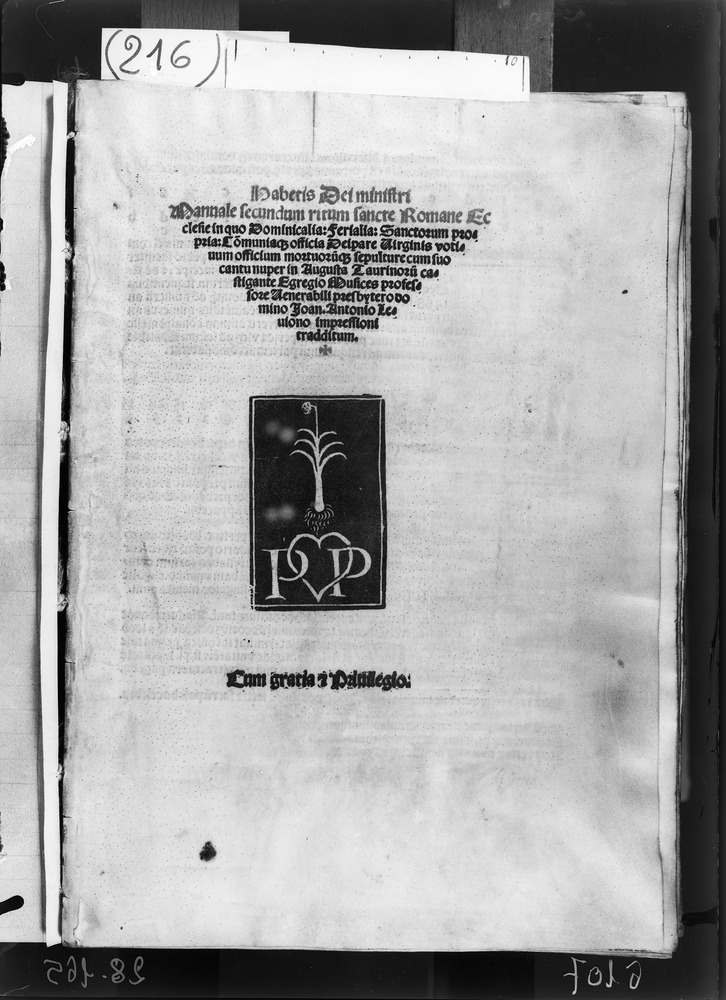 (216)
10
Habetis Dei ministri
Manuale secundum ritum sancte Romane Ec
clesie in quo Dominicalia: Ferialia: Sanctorum pro⸗
pria: Cōmuniaqꝫ officia Deipare Virginis voti⸗
uum officium mortuorūqꝫ sepulture cum suo
cantu nuper in Augusta Taurinorū ca⸗
stigante Egregio Musices profes⸗
sore Venerabili presbytero do
mino Joan. Antonio Le⸗
uiono impressioni
tradditum.
✠
P P
Cum gratia ⁊ Priuilegio.
28-165
6107